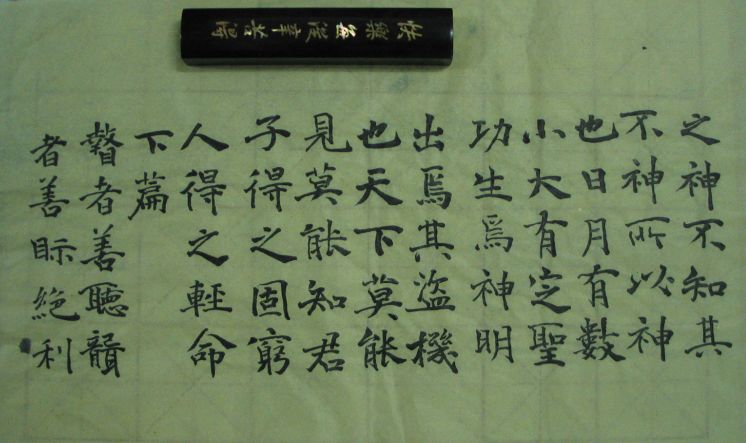 快樂每從辛苦得
之神不知其
不神所以神
也日月有數
小大有定聖
功生焉神明
出焉其盜機
也天下莫能
見莫能知君
子得之固窮
人得之輕命
下篇
瞽者善聽聾
者善眎絕利